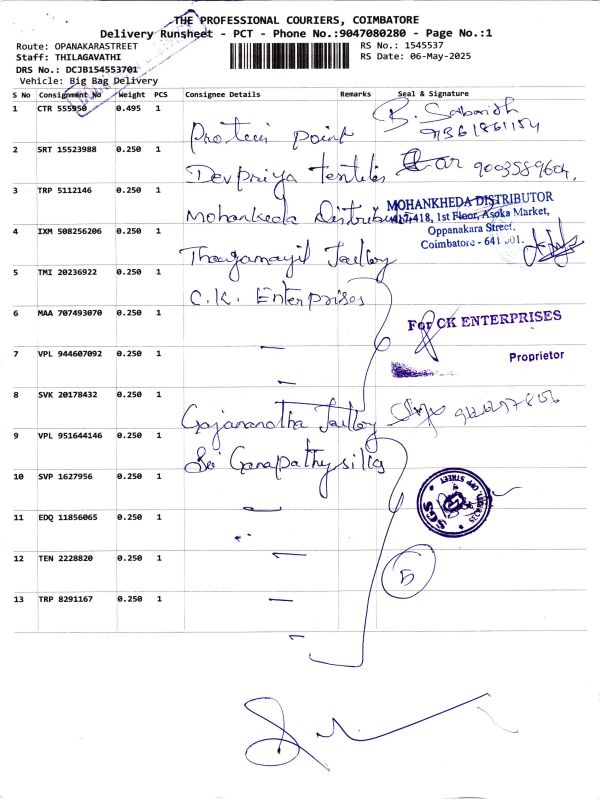 THE PROFESSIONAL COURIERS, COIMBATORE
Delivery Runsheet - PCT - Phone No.:9047080280 - Page No.:1
Route: OPANAKARASTREET
RS No.: 1545537
Staff: THILAGAVATHI
RS Date: 06-May-2025
DRS No.: DCJB154553701
Vehicle: Big Bag Delivery
S No Consignment No Weight PCS Consignee Details Remarks Seal & Signature
1 CTR 555950 0.495 1 Protein point B. Sabarish
2 SRT 15523988 0.250 1 Devpriya textiles 9003589604.
3 TRP 5112146 0.250 1 Mohankeda Distributor
MOHANKHEDA DISTRIBUTOR
417-418, 1st Floor, Asoka Market,
Oppanakara Street,
Coimbatore - 641 001.
4 IXM 508256206 0.250 1
5 TMI 20236922 0.250 1 C.K. Enterprises
6 MAA 707493070 0.250 1
For CK ENTERPRISES
7 VPL 944607092 0.250 1
Proprietor
8 SVK 20178432 0.250 1
9 VPL 951644146 0.250 1 Sri Ganapathy silks
10 SVP 1627956 0.250 1
SGS
OPP. STREET
11 EDQ 11856065 0.250 1
12 TEN 2228820 0.250 1
5
13 TRP 8291167 0.250 1